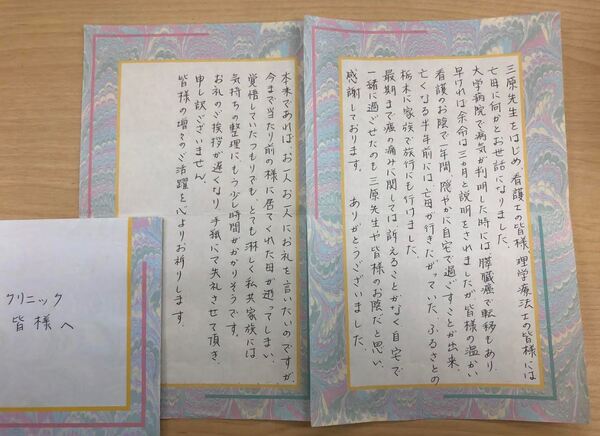 三原先生をはじめ、看護士の皆様、理学療法士の皆様には
亡母に何かとお世話になりました。
大学病院で病気が判明した時には膵臓癌で転移もあり
早ければ余命は三ヵ月と説明をされましたが皆様の温かい
看護のお陰で一年間、穏やかに自宅で過ごすことが出来、
亡くなる半年前には亡母が行きたがっていた、ふるさとの
栃木に家族で旅行にも行けました。
最期まで癌の痛みに関しては訴えることがなく自宅で
一緒に過ごせたのも三原先生や皆様のお陰だと思い、
感謝しております。 ありがとうございました。
本来であれば、お一人お一人にお礼を言いたいのですが、
今まで当たり前の様に居てくれた母が逝ってしまい、
覚悟していたつもりでも、とても淋しく私共家族には
気持ちの整理にもう少し時間がかかりそうです。
お礼のご挨拶が遅くなり、手紙にて失礼させて頂き、
申し訳ございません。
皆様の増々のご活躍を心よりお祈りします。
クリニック
皆様へ